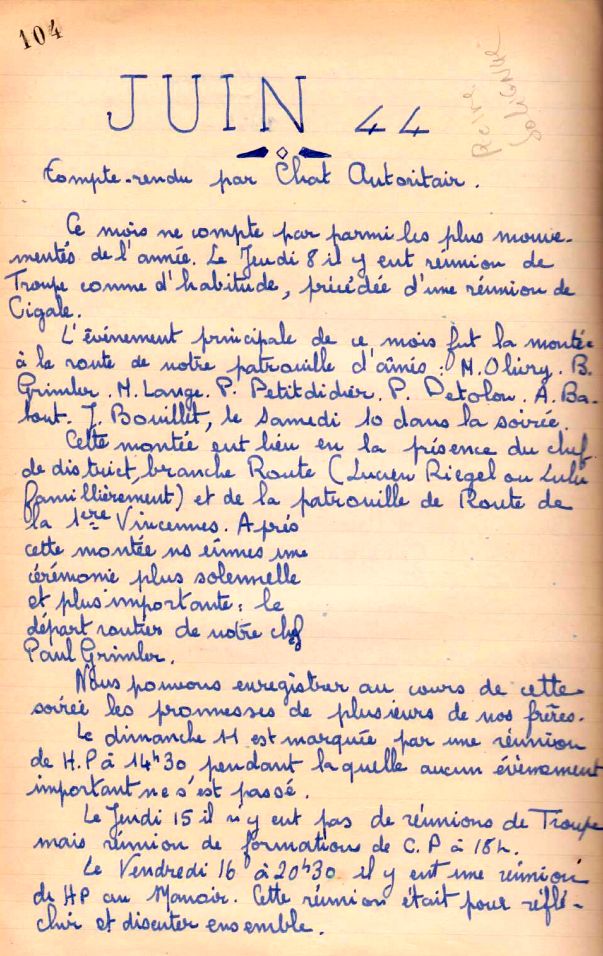 104
JUIN 44
Compte-rendu par Chat Autoritair.
Ce mois ne compte par parmi les plus mouve-
mentés de l'année. Le Jeudi 8 il y eut réunion de
Troupe comme d'habitude, précédée d'une réunion de
Cigale.
L'évènement principale de ce mois fut la montée
à la route de notre patrouille d'aînés : M. Oliviry. B.
Grimler. M. Lange. P. Petitdidier. P. Detolou. A. Ba-
lout. J. Bouillet, le samedi 10 dans la soirée.
Cette montée eut lieu en la présence du chef
de district, branche Route (Lucien Riegel ou Lulu
famillièrement) et de la patrouille de Route de
la 1ère Vincennes. Après
cette montée ns eûmes une
cérémonie plus solennelle
et plus importante : le
départ routier de notre chef
Paul Grimler.
Nous pouvons enregistrer au cours de cette
soirée les promesses de plusieurs de nos frères.
Le dimanche 11 est marquée par une réunion
de H.P à 14h30 pendant laquelle aucun évènement
important ne s'est passé.
Le Jeudi 15 il n'y eut pas de réunions de Troupe
mais réunion de formation de C.P à 18h.
Le Vendredi 16 à 20h30 il y eut une réunion
de HP au Manoir. Cette réunion était pour réflé-
chir et discuter ensemble.